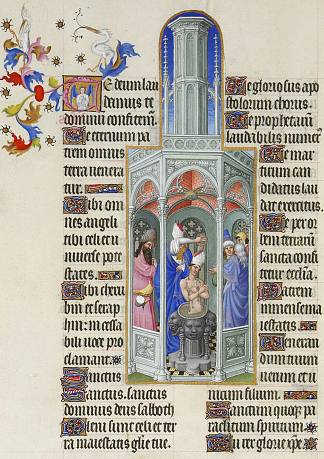 Te deum lau
damus te
dominum confitemur.
Te eternum pa
trem omnis
terra venera
tur.
Tibi om
nes angeli
tibi celi et u
niverse pote
states.
Tibi cheru
bin et serap
hin: incessa
bili voce pro
clamant.
Sanctus
Sanctus. sanctus
dominus deus sabaoth
Pleni sunt celi et ter
ra maiestatis glorie tue.
Te gloriosus apo
stolorum chorus.
Te prophetarum
laudabilis numerus.
Te mar
tirum can
didatus lau
dat exercitus.
Te per or
bem terrarum
sancta confi
tetur ecclesia.
Patrem
immense ma
iestatis.
Veneran
dum tuum
verum et u
nicum filium.
Sanctum quoque pa
raclitum spiritum.
Tu rex glorie xpe.